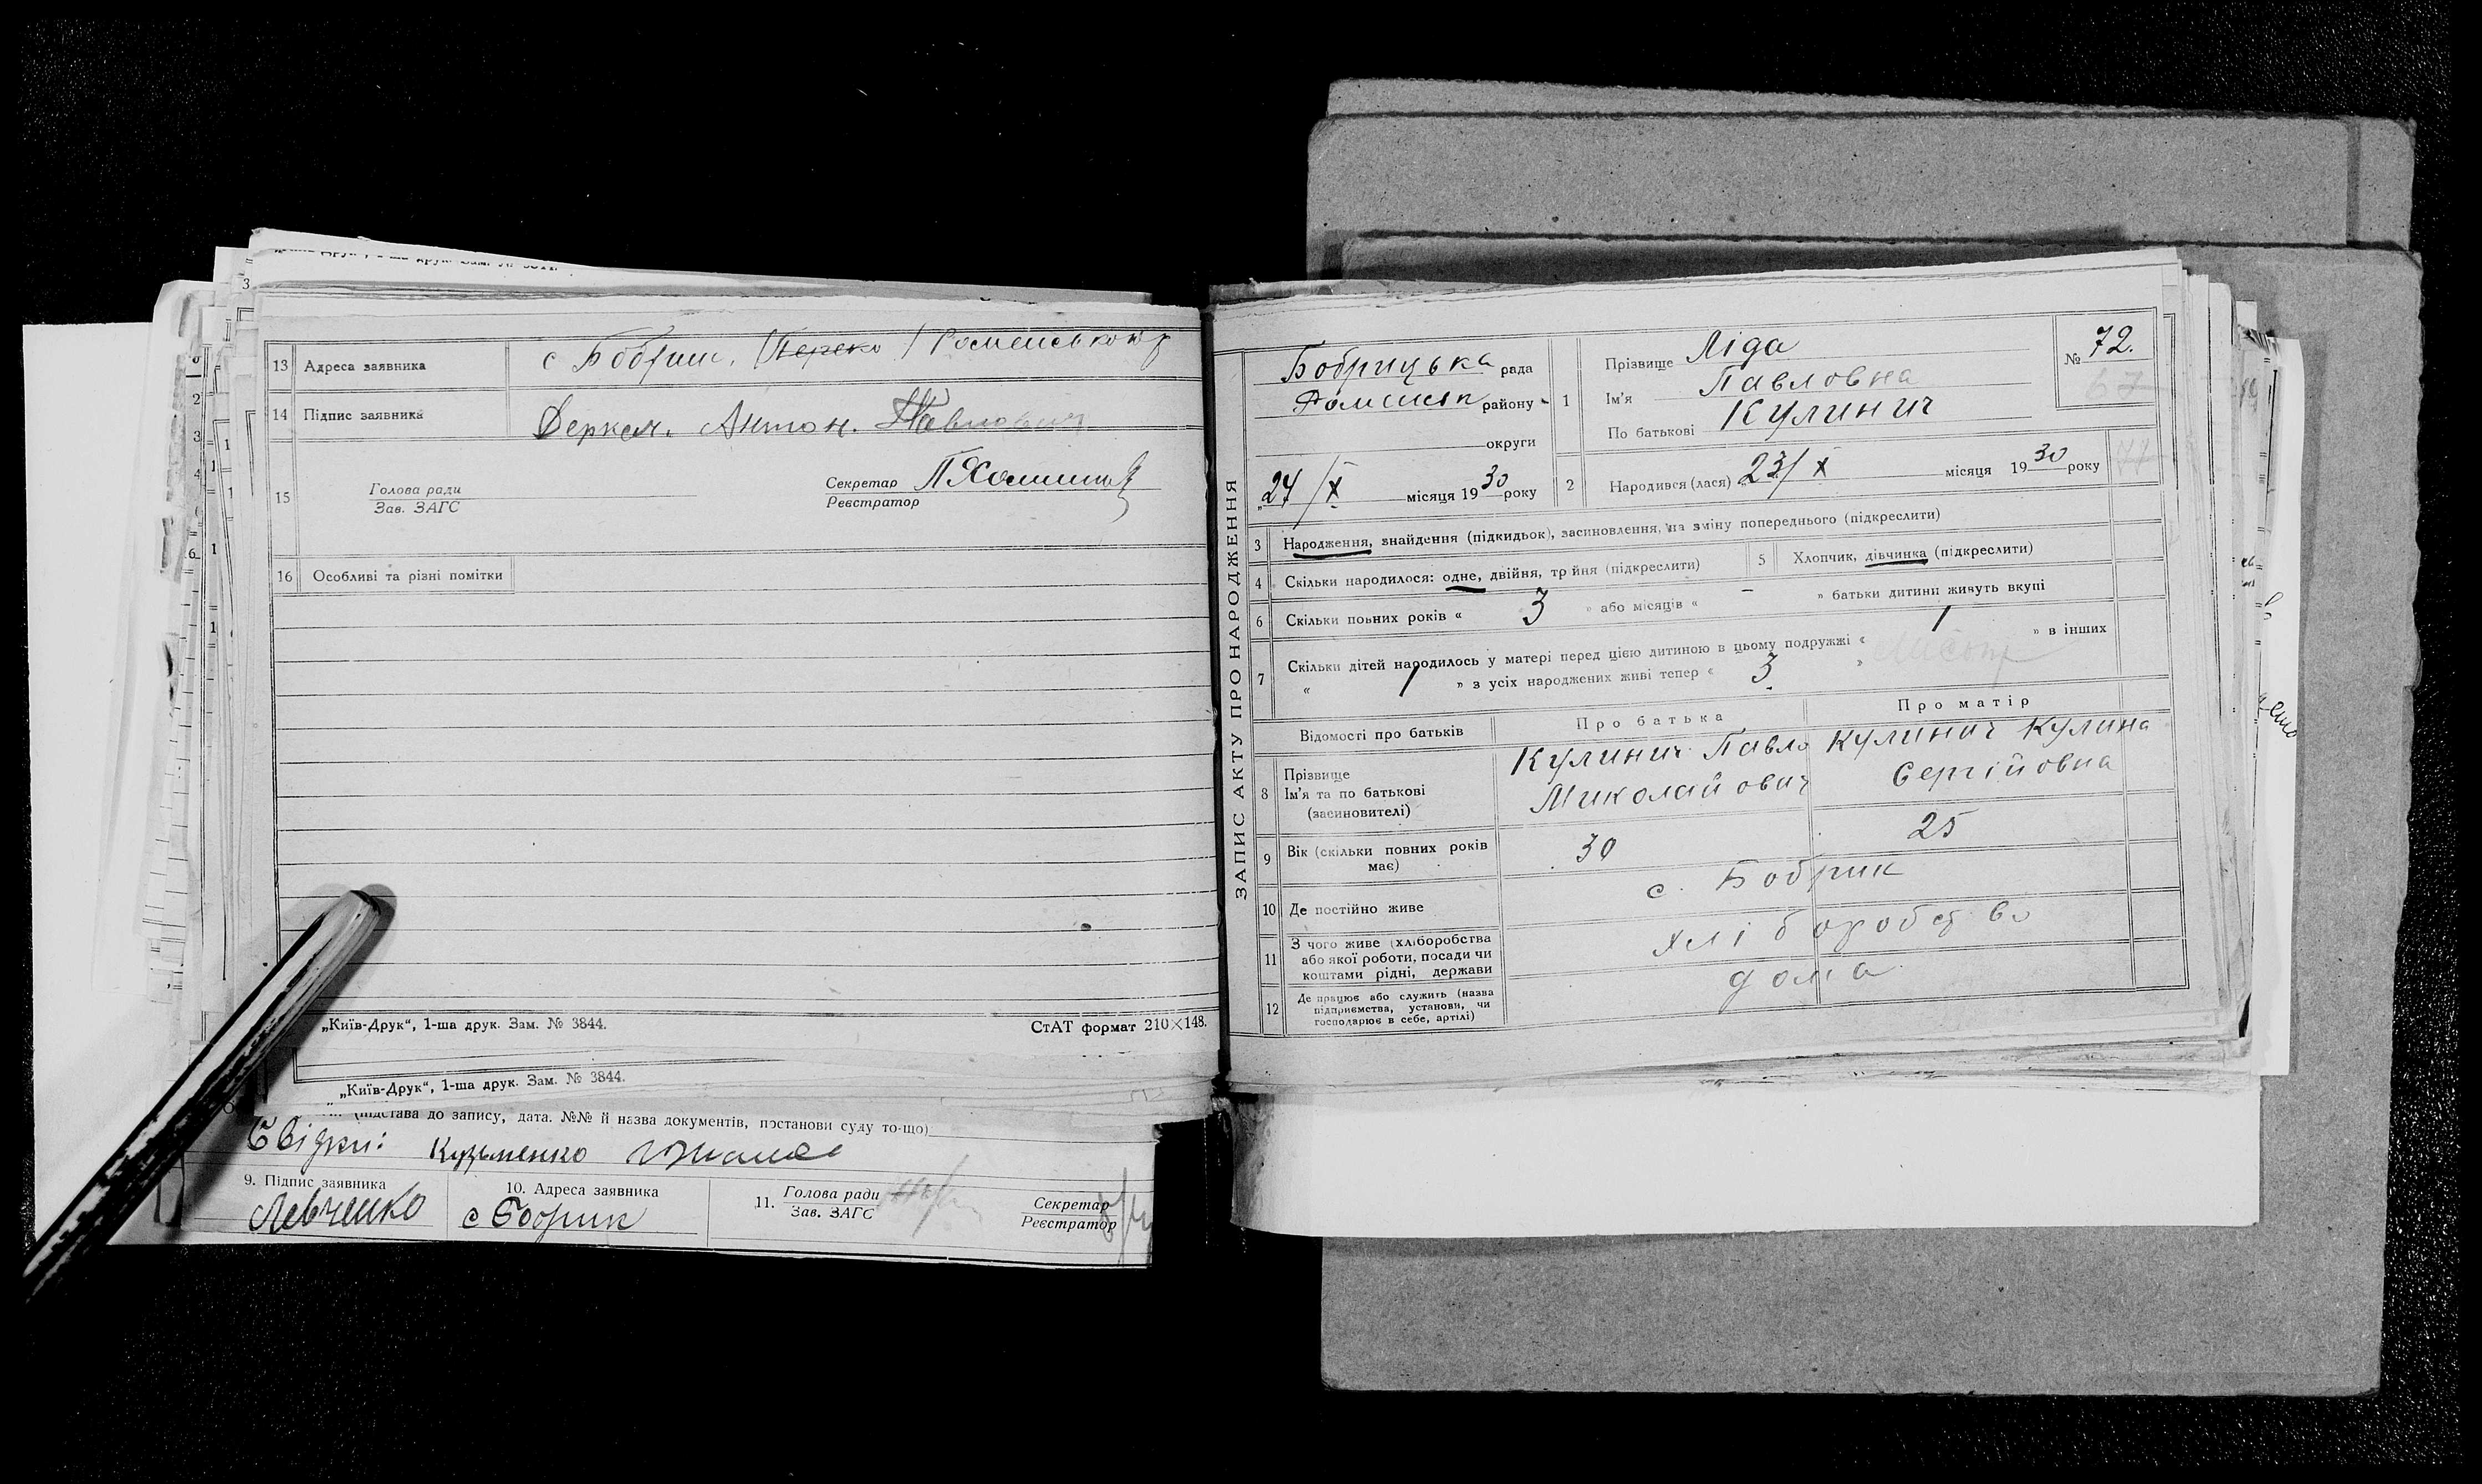 13 Адреса заявника с Бобрик.
14 Підпис заявника Деркач. Антон. Павлович
15 Голова ради
Зав. ЗАГС
Секретар
Реєстратор
16 Особливі та різні помітки
„Київ-Друк“, 1-ша друк. Зам. № 3844.
СтАТ формат 210×148.
„Київ-Друк“, 1-ша друк. Зам. № 3844.
(підстава до запису, дата. №№ й назва документів, постанови суду то-що)
Свідки: Кузьменко
9. Підпис заявника
Левченко
10. Адреса заявника
с Бобрик
11. Голова ради
Зав. ЗАГС
Секретар
Реєстратор
ЗАПИС АКТУ ПРО НАРОДЖЕННЯ
Бобрицька рада
району
округи
24/X місяця 1930 року
1 Прізвище Ліда
Ім'я Павловна
По батькові Кулинич
№ 72.
2 Народився (лася) 23/X місяця 1930 року
3 Народження, знайдення (підкидьок), засиновлення, на зміну попереднього (підкреслити)
4 Скільки народилося: одне, двійня, трійня (підкреслити)
5 Хлопчик, дівчинка (підкреслити)
6 Скільки повних років « 3 » або місяців « - » батьки дитини живуть вкупі
7 Скільки дітей народилось у матері перед цією дитиною в цьому подружжі « 1 » в інших
« 1 » з усіх народжених живі тепер « 3 »
Відомості про батьків
Про батька
Про матір
8 Прізвище
Ім'я та по батькові
(засиновителі)
Кулинич Павло
Миколайович
Кулинич Кулина
Сергійовна
9 Вік (скільки повних років
має)
30
25
10 Де постійно живе
с. Бобрик
11 З чого живе (хліборобства
або якої роботи, посади чи
коштами рідні, держави
хліборобство
12 Де працює або служить (назва
підприємства, установи, чи
господарює в себе, артілі)
дома